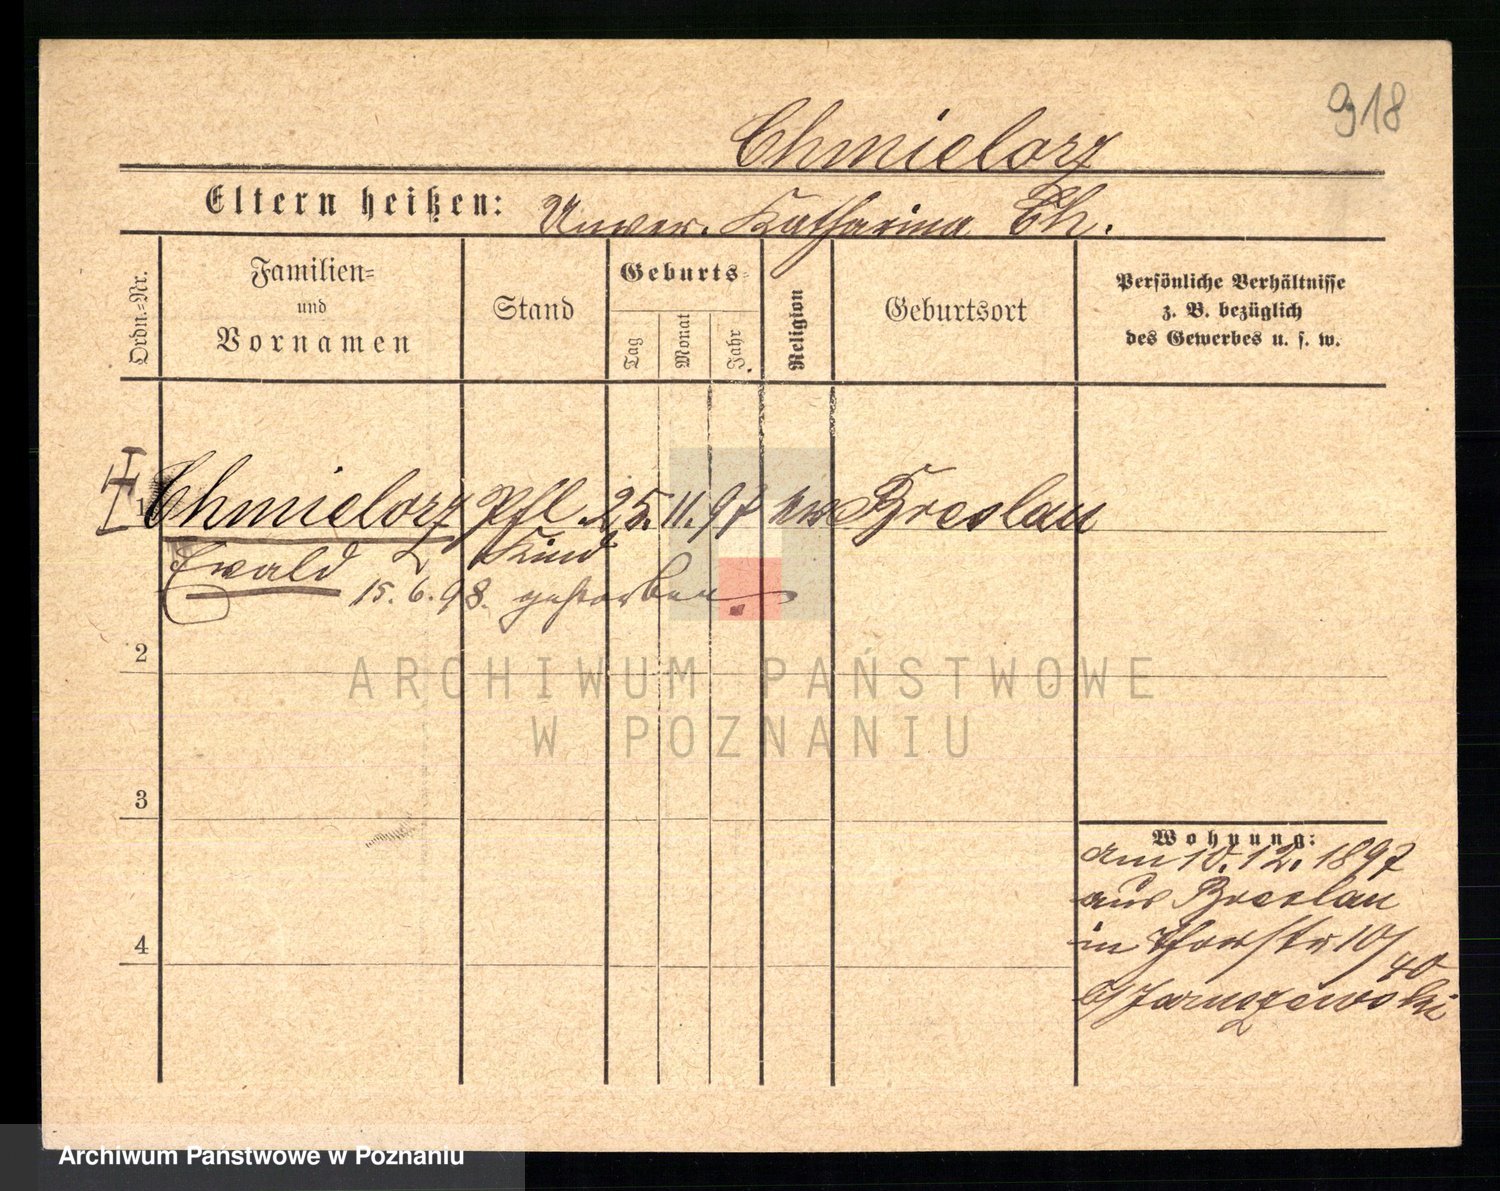 918
Chmielorz
Eltern heißen: Unver. Katharina Ch.
Ordn.-Nr.
Familien-
und
Vornamen
Stand
Geburts-
Tag
Monat
Jahr
Religion
Geburtsort
Persönliche Verhältnisse
z. B. bezüglich
des Gewerbes u. s. w.
1 Chmielorz Pfl. 25. 11. 97 Breslau
Ewald Kind
15. 6. 98. gestorben.
2
3
4
Wohnung:
am 10. 12. 1897
aus Breslau
in Thorstr 10/
40
b/Jaruszewski
ARCHIWUM PAŃSTWOWE
W POZNANIU
Archiwum Państwowe w Poznaniu